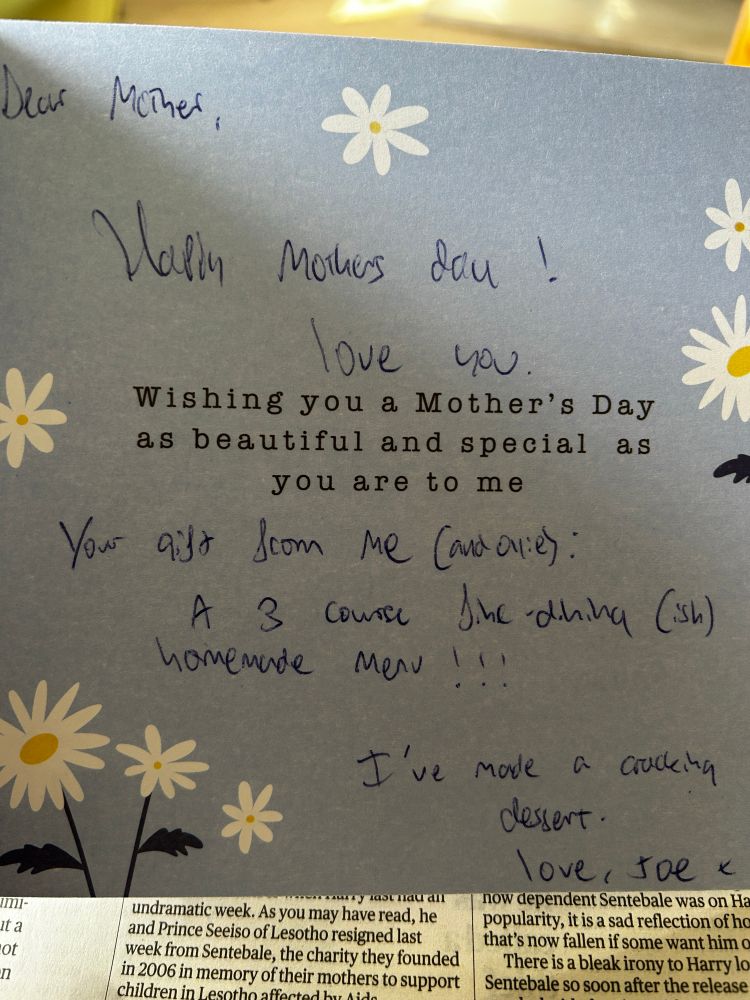 Dear Mother,
Happy Mothers day !
love you.
Wishing you a Mother's Day
as beautiful and special as
you are to me
Your gift from me (and Ollie):
A 3 course fine-dining (ish)
homemade menu !!!
I've made a cracking
dessert.
love, Joe x
undramatic week. As you may have read, he
and Prince Seeiso of Lesotho resigned last
week from Sentebale, the charity they founded
in 2006 in memory of their mothers to support
children in Lesotho affected by Aids.
now dependent Sentebale was on Ha
popularity, it is a sad reflection of ho
that's now fallen if some want him o
There is a bleak irony to Harry lo
Sentebale so soon after the release